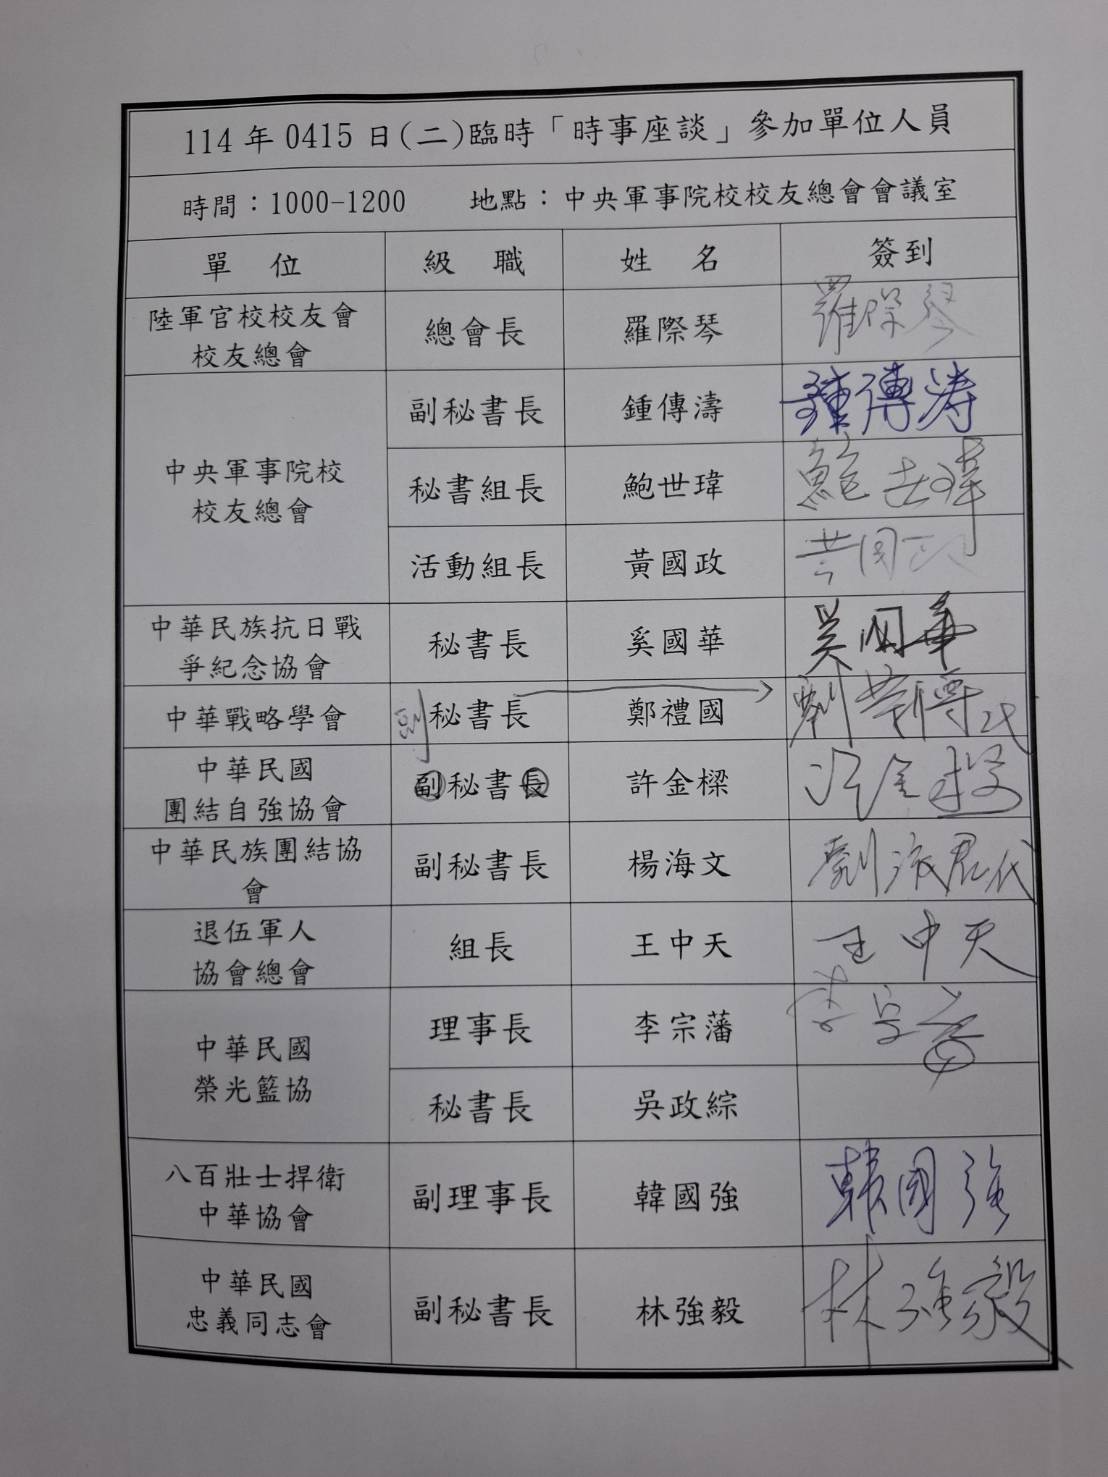 114年0415日(二)臨時「時事座談」參加單位人員
時間：1000-1200 地點：中央軍事院校校友總會會議室
單 位 級 職 姓 名 簽到
陸軍官校校友會
校友總會
總會長 羅際琴 羅際琴
中央軍事院校
校友總會
副秘書長 鍾傳濤 鍾傳濤
秘書組長 鮑世瑋 鮑世瑋
活動組長 黃國政 黃国政
中華民族抗日戰
爭紀念協會
秘書長 奚國華 奚國華
中華戰略學會 副秘書長 鄭禮國 代
中華民國
團結自強協會
副秘書長 許金樑 许金樑
中華民族團結協
會
副秘書長 楊海文 代
退伍軍人
協會總會
組長 王中天 王中天
中華民國
榮光籃協
理事長 李宗藩 李宗藩
秘書長 吳政綜
八百壯士捍衛
中華協會
副理事長 韓國強 韓國強
中華民國
忠義同志會
副秘書長 林強毅 林強毅